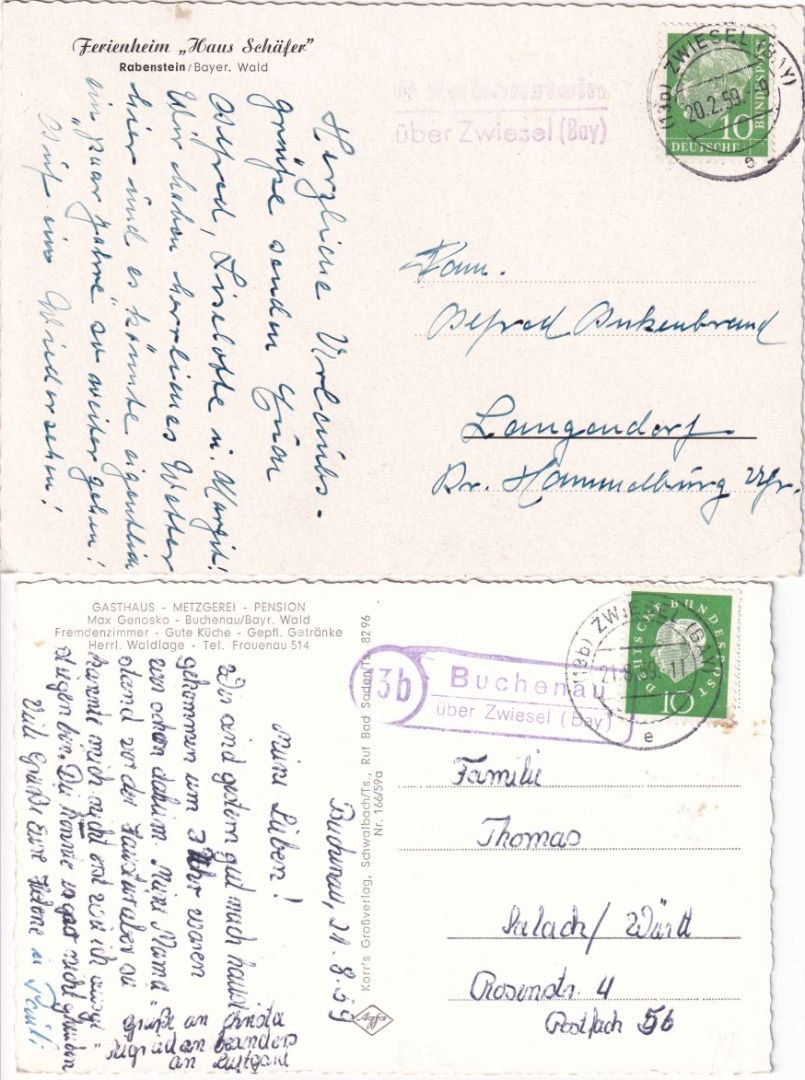 Ferienheim „Haus Schäfer"
Rabenstein/Bayer. Wald
Herzliche Urlaubs-
grüße senden Euch
Alfred, Liselotte u. Margit!
Wir haben herrliches Wetter
hier und es könnte eigentlich
ein „paar Jahre" so weiter gehen!
Auf ein Wiedersehen!
Rabenstein
über Zwiesel (Bay)
(13b) ZWIESEL (BAY)
20.2.59
e
10
DEUTSCHE
BUNDESPOST
Fam.
Alfred
Langendorf
Kr. Hammelburg Ufr.
GASTHAUS - METZGEREI - PENSION
Max Genosko - Buchenau/Bayr. Wald
Fremdenzimmer - Gute Küche - Gepfl. Getränke
Herrl. Waldlage - Tel. Frauenau 514
Buchenau, 21.8.59
Meine Lieben!
Wir sind gestern gut nach hause
gekommen um 3 Uhr waren
wir schon daheim. Meine Mama
stand vor der Haustür aber sie
kannte mich nicht erst wie ich
Sie konnte es gar nicht glauben
Viele Grüße Eure Helene u
Grüße an
besonders
an
Korr's Großverlag, Schwalbach/Ts., Ruf Bad Soden/Ts. 8296
Nr. 166/59a
13b
Buchenau
über Zwiesel (Bay)
(13b) ZWIESEL (BAY)
21.8.59
e
DEUTSCHE BUNDESPOST
10
Familie
Thomas
Salach/ Württ
Rosenstr. 4
Postfach 56